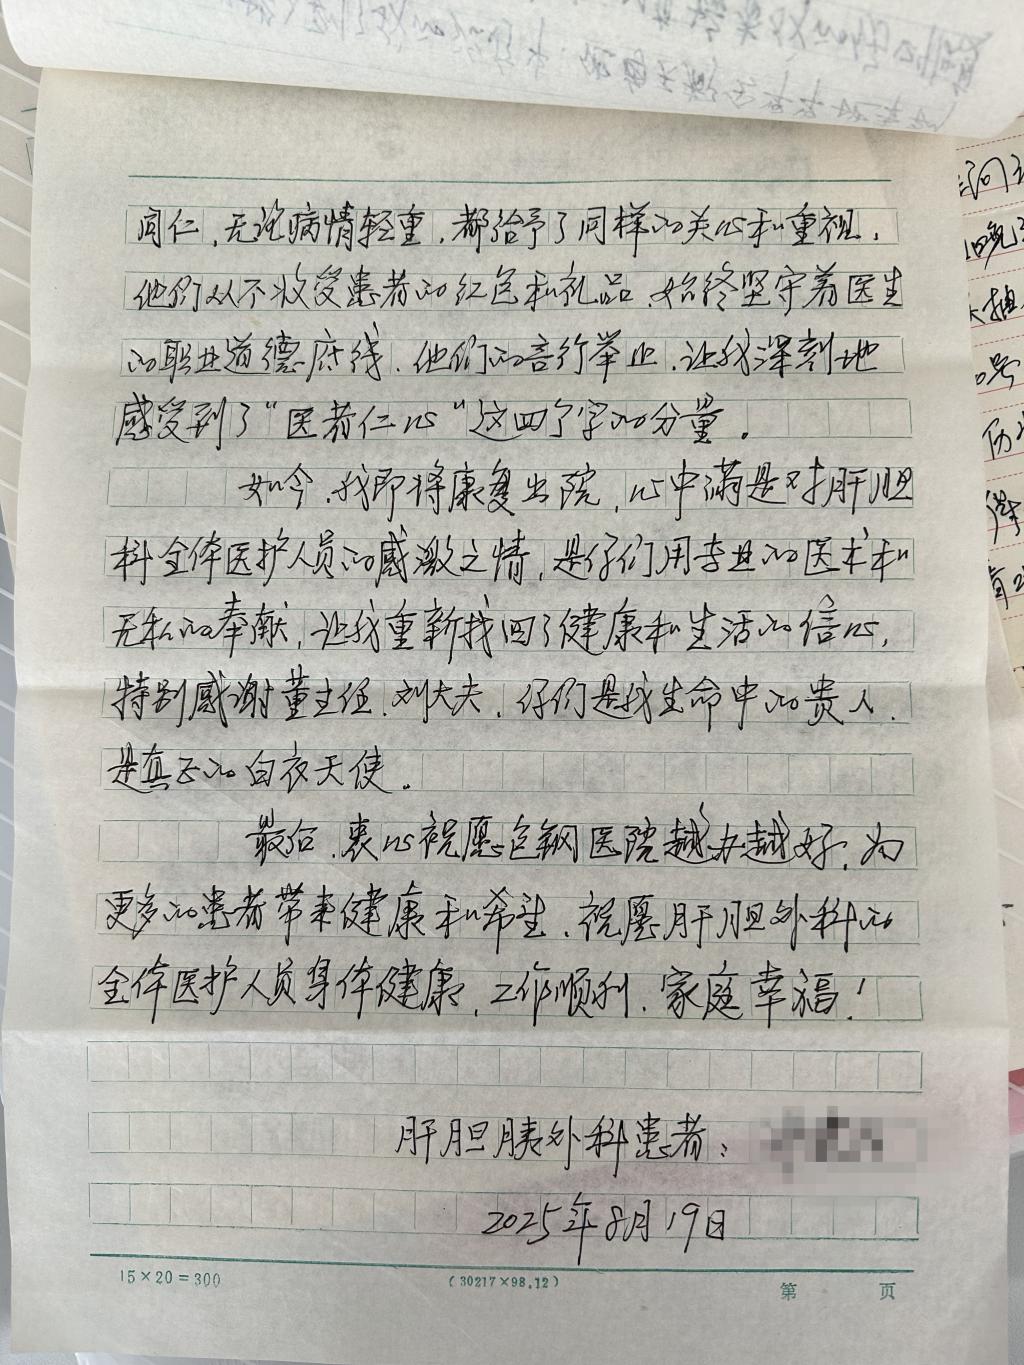 同仁,无论病情轻重,都给予了同样的关心和重视,
他们从不收受患者的红包和礼品,始终坚守着医生
的职业道德底线,他们的言行举止,让我深刻地
感受到了“医者仁心”这四个字的分量。
如今,我即将康复出院,心中满是对肝胆
科全体医护人员的感激之情,是你们用专业的医术和
无私的奉献,让我重新找回了健康和生活的信心,
特别感谢董主任、刘大夫,你们是我生命中的贵人,
是真正的白衣天使。
最后,衷心祝愿包钢医院越办越好,为
更多的患者带来健康和希望,祝愿肝胆外科的
全体医护人员身体健康,工作顺利,家庭幸福!
肝胆胰外科患者:
2025年8月19日
15×20=300
(30217×98.12)
第 页